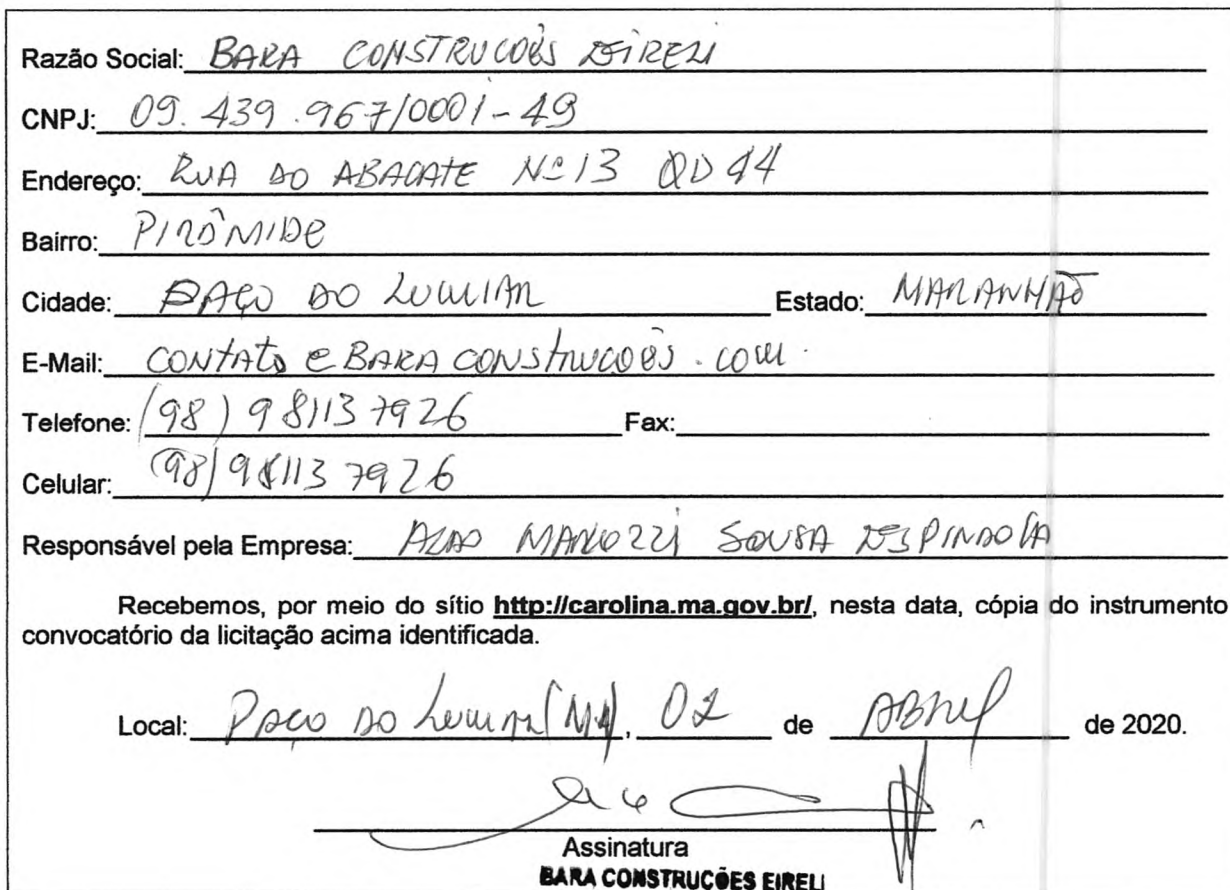 Razão Social: BARA CONSTRUCOÊS EIRELI
CNPJ: 09.439.967/0001-49
Endereço: RUA DO ABACATE Nº 13 QD 44
Bairro: PIRÂMIDE
Cidade: PAÇO DO LUMIAR Estado: MARANHÃO
E-Mail: CONTATO @ BARA CONSTRUCOÊS.COM.
Telefone: (98) 981137926 Fax:
Celular: (98) 981137926
Responsável pela Empresa: SOUSA ESPINDOLA
Recebemos, por meio do sítio http://carolina.ma.gov.br/, nesta data, cópia do instrumento
convocatório da licitação acima identificada.
Local: PAÇO DO LUMIAR (MA), de ABRIL de 2020.
Assinatura
BARA CONSTRUCÕES EIRELI